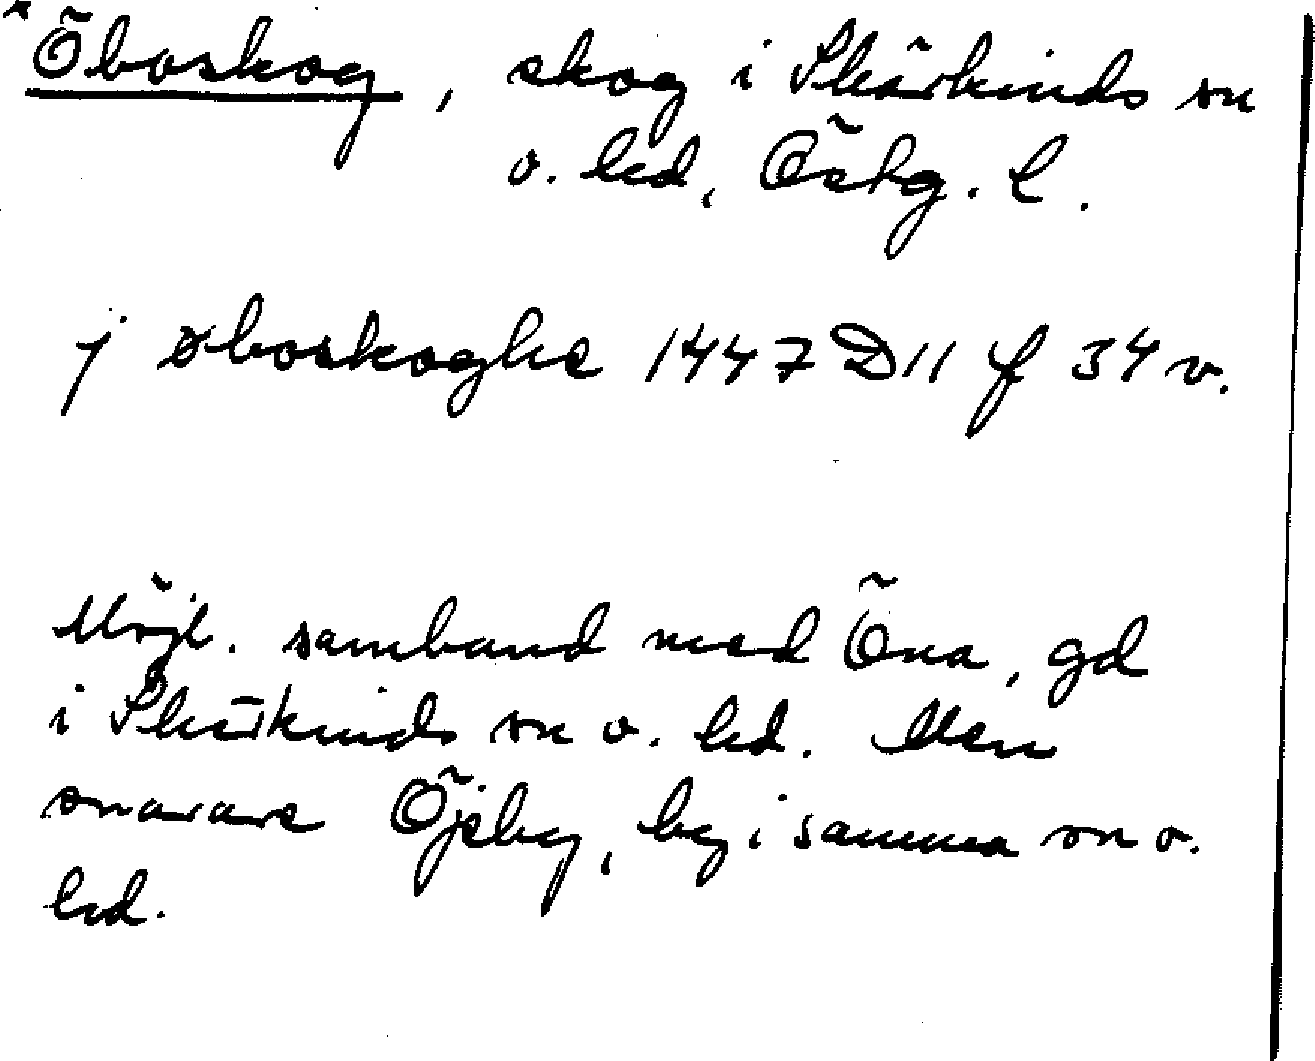 *Öboskog, skog i Skärkinds sn
o. hd, Östg. l.
j øboskoghe 1447 D11 f 34 v.
Möjl. samband med Öna, gd
i Skärkinds sn o. hd. Men
snarare Öjeby, by i samma sn o.
hd.